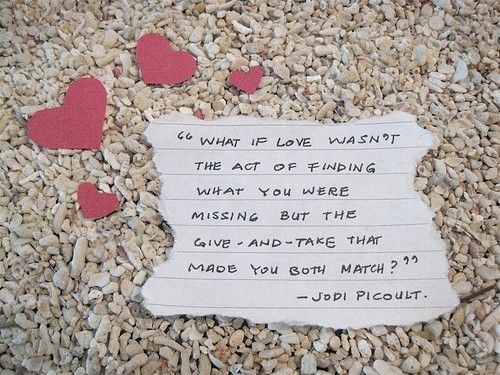 “ WHAT IF LOVE WASN'T
THE ACT OF FINDING
WHAT YOU WERE
MISSING BUT THE
GIVE-AND-TAKE THAT
MADE YOU BOTH MATCH? ”
— JODI PICOULT.